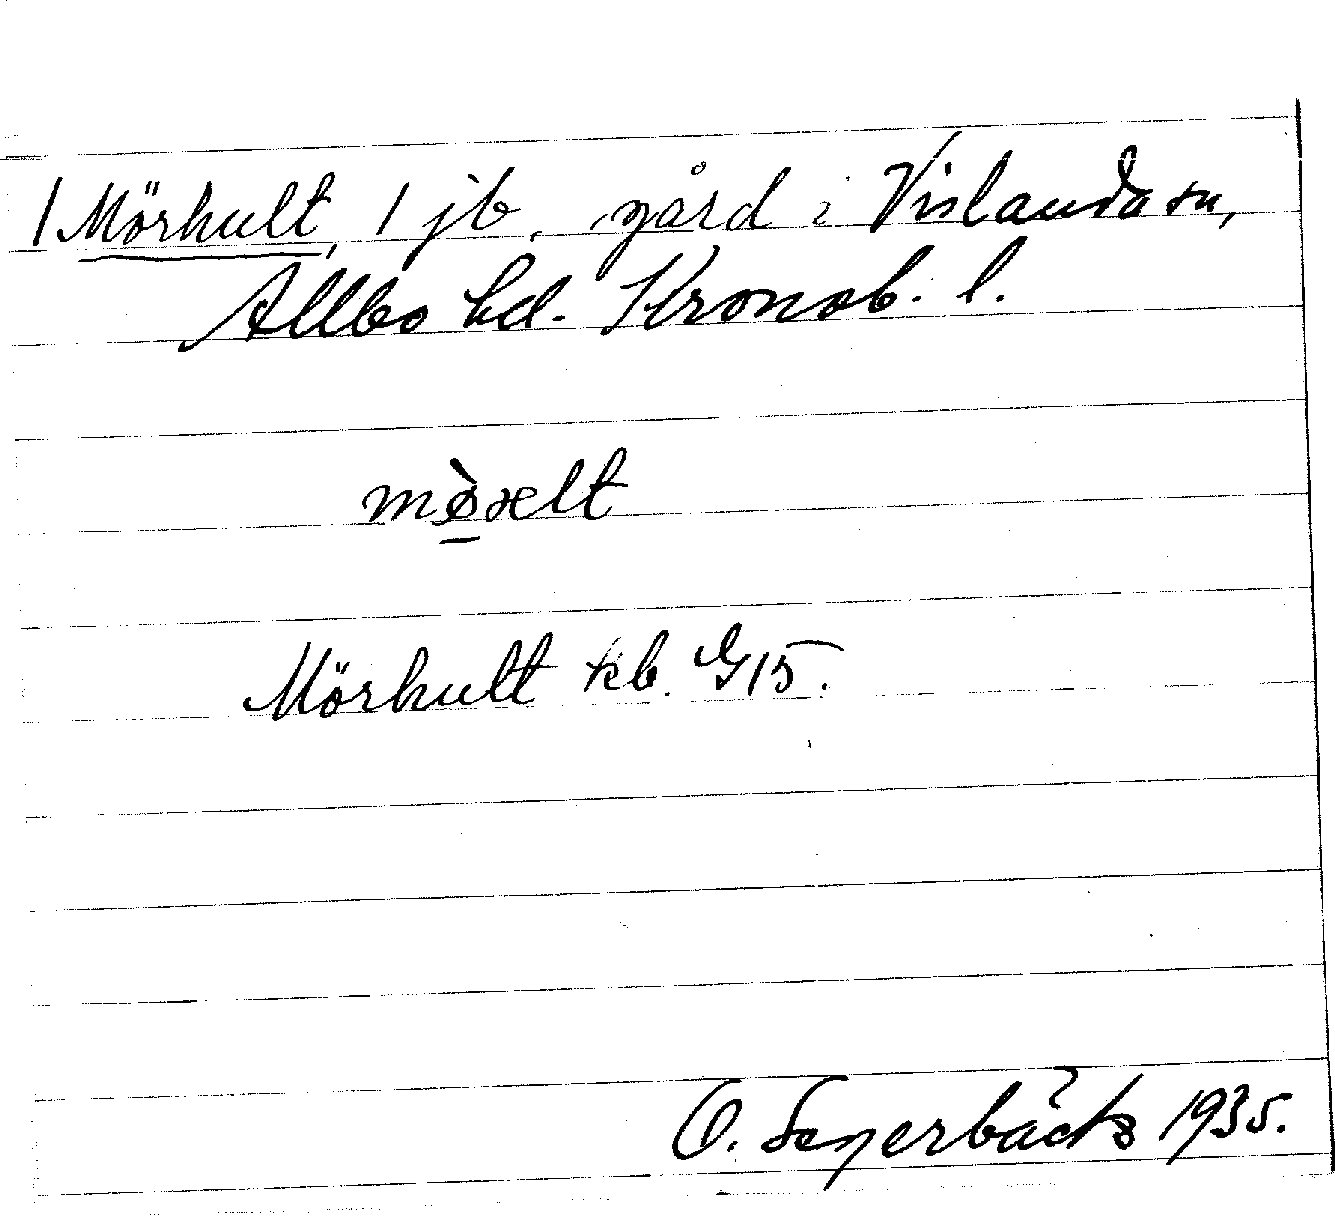 1 Mörhult, 1 jb, gård i Vislanda sn,
Allbo hd. Kronob. l.
mø̠̀xelt
Mörhult kb. G15.
O. 1935.